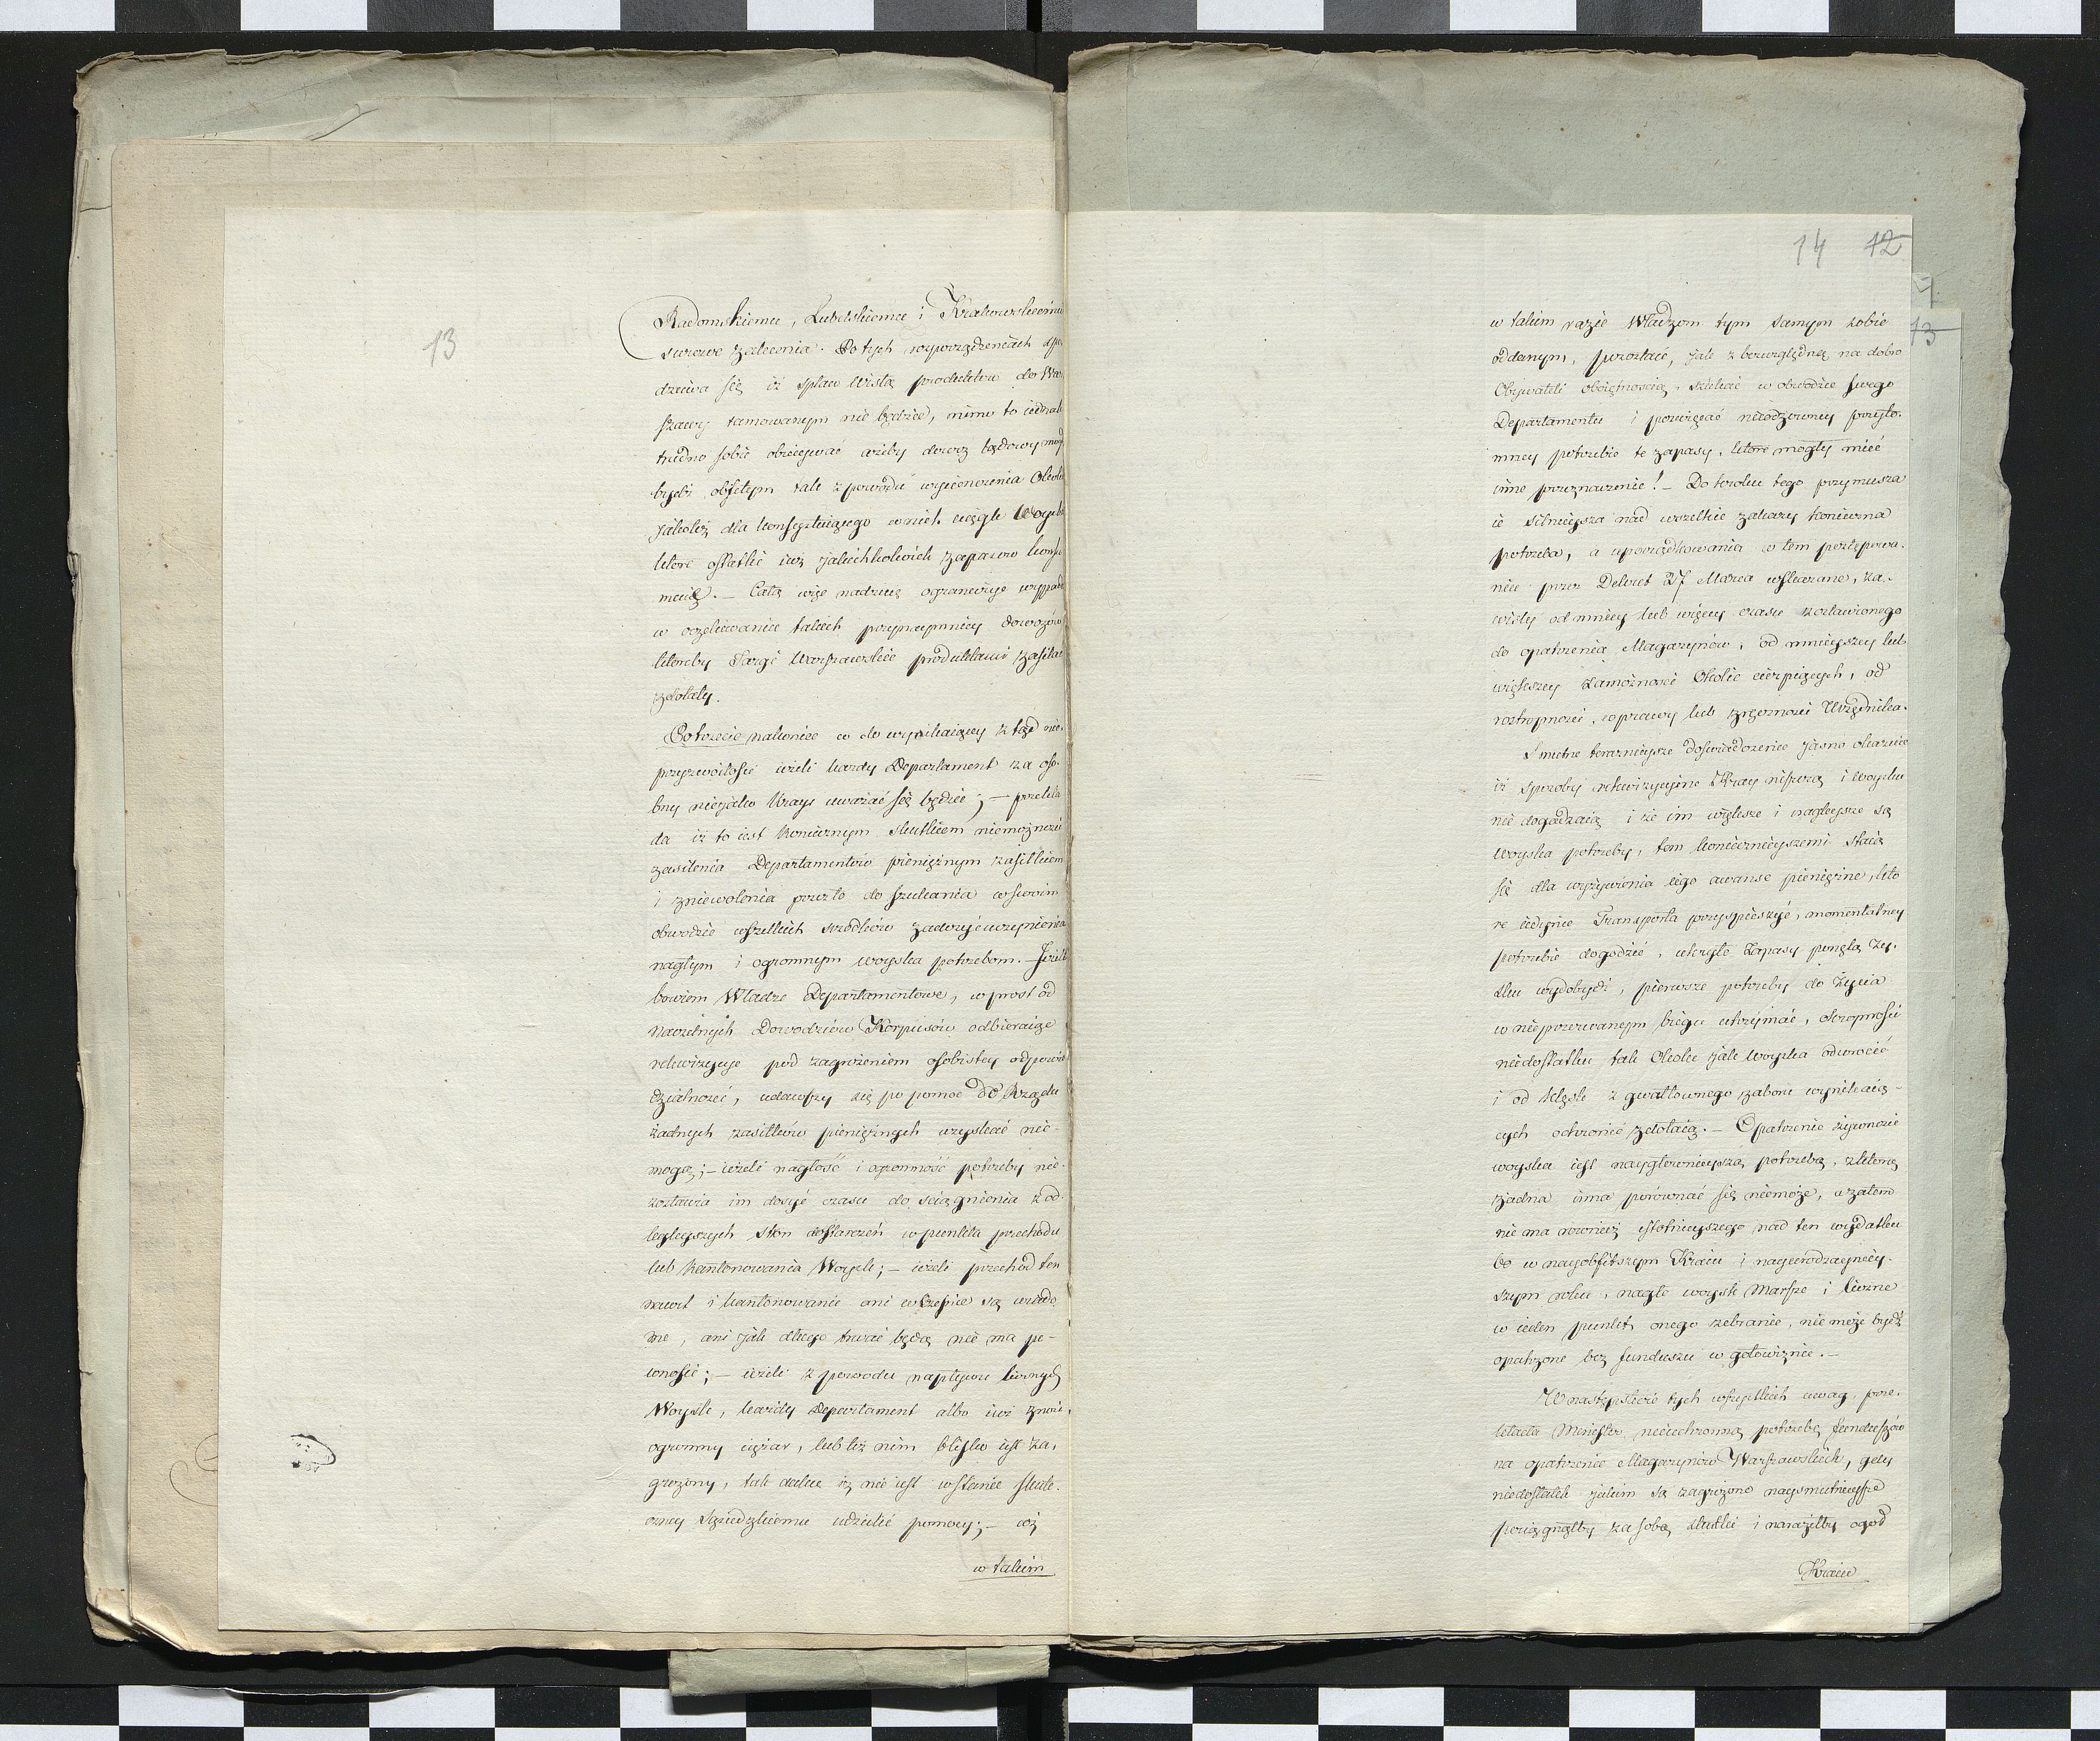 13
Radomskiemu, Lubelskiemu i Krakowskiemu
surowe zalecenia. Po tych rozporządzeniach spo
dziewa się iż spław Wisłą produktów do War
szawy tamowanym nie będzie, mimo to iednak
trudno sobie obiecywać ażeby dowóz lądowy mógł
bydź obfitym tak z powodu wycieńczenia Okolic
jakoteż dla konsystuiącego w nich ciągle Woyska
które ostatki iuż jakichkolwiek zapasów konsu
muie. – Całą więc nadzieię ogranicza wypada
w oczekiwaniu takich przynaymniey dowozów
któreby Targi Warszawskie produktami zasilać
zdołały.
Potrzecie nakoniec co do wynikaiącey ztąd nie-
przyzwoitości ieżeli każdy Departament za oso-
bny nieiako Kray uważać się będzie; – przekła
da iż to iest koniecznym skutkiem niemożności
zasilenia Departamentów pieniężnym zasiłkiem
i zniewolenia przeto do szukania w swoim
obwodzie wszelkich srodków zadosyć uczynienia
nagłym i ogromnym woyska potrzebom. – Jeżeli
bowiem Władze Departamentowe, wprost od
naczelnych Dowodzców Korpusów odbieraiąc
rekwizycye pod zagrożeniem osobistey odpowie
dzialności, udawszy się po pomoc do Rządu
żadnych zasiłków pieniężnych uzyskać nie-
mogą; – ieżeli nagłość i ogromność potrzeby nie-
zostawia im dosyć czasu do sciągnienia z od-
legleyszych stron dostarczeń w punkta przechodu
lub kantonowania Woysk; – ieżeli przechód ten
nawet i kantonowanie ani wcześnie są wiado
me, ani jak długo trwać będą nie ma pe-
wności; – ieżeli z powodu napływu licznych
Woysk, każdy Departament albo iuż znosi
ogromny ciężar, lub też nim blisko iest za-
grożony, tak dalece iż nie iest w stanie skute-
czney Sąsiedzkiemu udzielić pomocy; – coż
w takim
14 12
13
w takim razie Władzom tym samym sobie
oddanym, pozostaie, jak z bezwzględną na dobro
Obywateli obiętnością, szukać w obwodzie swego
Departamentu i poświęcać nieodzowney przyto-
mney potrzebie te zapasy, które mogły mieć
inne przeznaczenie! – Do kroku tego przymusza
ie silnieysza nad wszelkie zakazy konieczna
potrzeba, a uporządkowania w tem postępowa-
niu przez Dekret 27 Marca wskazane, za-
wisły od mniey lub więcey czasu zostawionego
do opatrzenia Magazynów, od mnieyszey lub
większey zamożności Okolic cierpiących, od
roztropności, wprawy lub zręczności Urzędnika.
Smutne teraznieysze doświadczenie jasno okazuie
iż sposoby rekwizycyine Kray niszczą i woysku
nie dogadzaią i że im większe i nagleysze są
woyska potrzeby, tem koniecznieyszemi staią
się dla wyżywienia iego awanse pieniężne, któ
re iedynie Transporta przyspieszyć, momentalney
potrzebie dogodzić, ukryte zapasy ponętą zy-
sku wydobydź, pierwsze potrzeby do życia
w nieprzerwanym biegu utrzymać, okropności
niedostatku tak Okolic jak woyska odwrócić
i od klęsk z gwałtownego zaboru wynikaią-
cych ochronić zdołaią. – Opatrzenie żywności
woyska iest naygłownieyszą potrzebą, z którą
żadna inna porównać się niemoże, a zatem
nie ma rownież istotnieyszego nad ten wydatku
bo w nayobfitszym Kraiu i nayurodzayniey-
szym roku, nagłe woysk Marsze i liczne
w ieden punkt onego zebranie, nie może bydź
opatrzone bez funduszu w gotowiznie. –
W następstwie tych wszystkich uwag, prze-
kłada Minister nieuchronną potrzebę funduszów
na opatrzenie Magazynów Warszawskich, gdy
niedostatek jakim są zagrożone naysmutnieysze
pociągnąłby za sobą skutki i naraziłby ogół
Kraiu